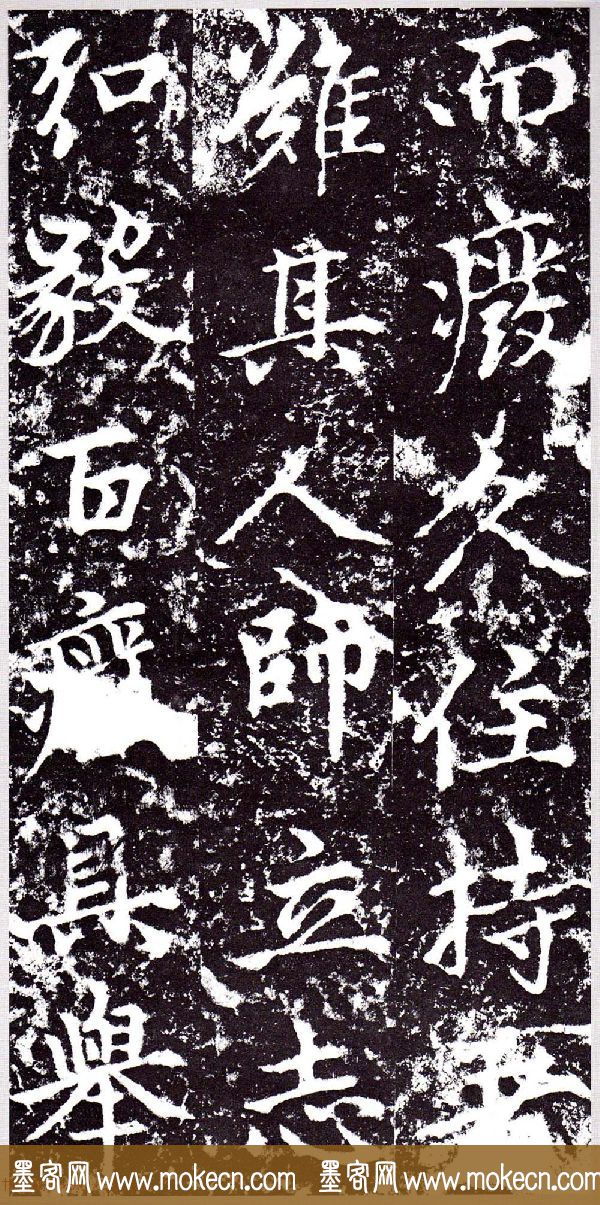 而癈久住持
難其人師立志
弘毅百癈具舉
墨客网 www.mokecn.com 墨客网 www.mokecn.com